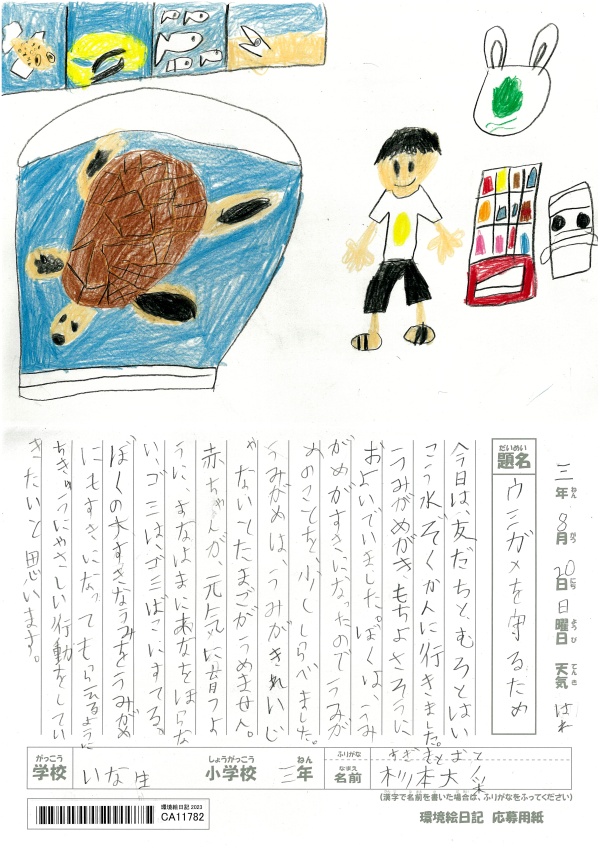 三年 8月 20日 日曜日 天気 はれ
ねん がつ にち ようび てんき
だいめい
題名 ウミガメを守るため
今日は、友だちと、むろとはい
こう水ぞくかんに行きました。
うみがめがきもちよさそうに
およいでいました。ぼくは、うみ
がめがすきになったので、うみが
めのことを少ししらべました。
うみがめは、うみがきれいじ
ゃないとたまごがうめません。
赤ちゃんが、元気に育つよ
うに、すなはまにあなをほらな
い、ゴミは、ゴミばこにすてる、
ぼくの大すきなうみをうみがめ
にもすきになってもらえるように
ちきゅうにやさしい行動をしてい
きたいと思います。
がっこう しょうがっこう ねん ふりがな すぎもと
学校 いな生 小学校 三年
なまえ
名前 杉本大
(漢字で名前を書いた場合は、ふりがなをふってください)
環境絵日記 2023
CA11782
環境絵日記 応募用紙